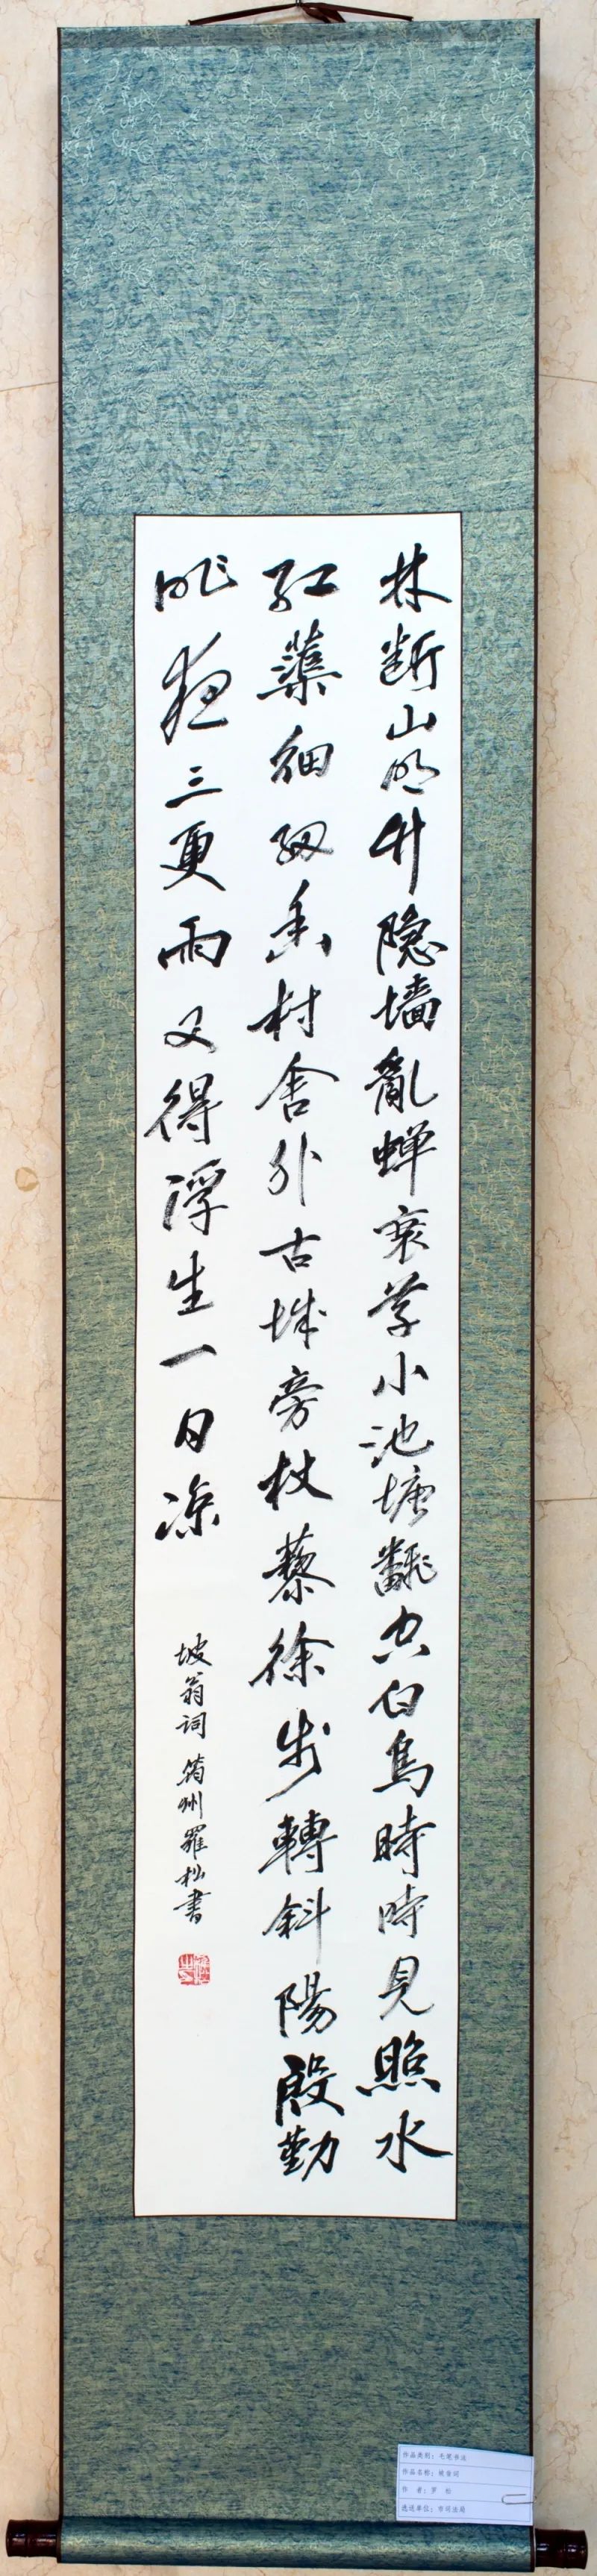 林断山明竹隐墙亂蝉衰草小池塘翻空白鳥時時見照水
紅蕖細細香村舍外古城旁杖藜徐步轉斜陽殷勤
昨夜三更雨又得浮生一日凉
坡翁词 筠州羅松書
作品类别：毛笔书法
作品名称：坡翁词
作 者：罗 松
选送单位：市司法局